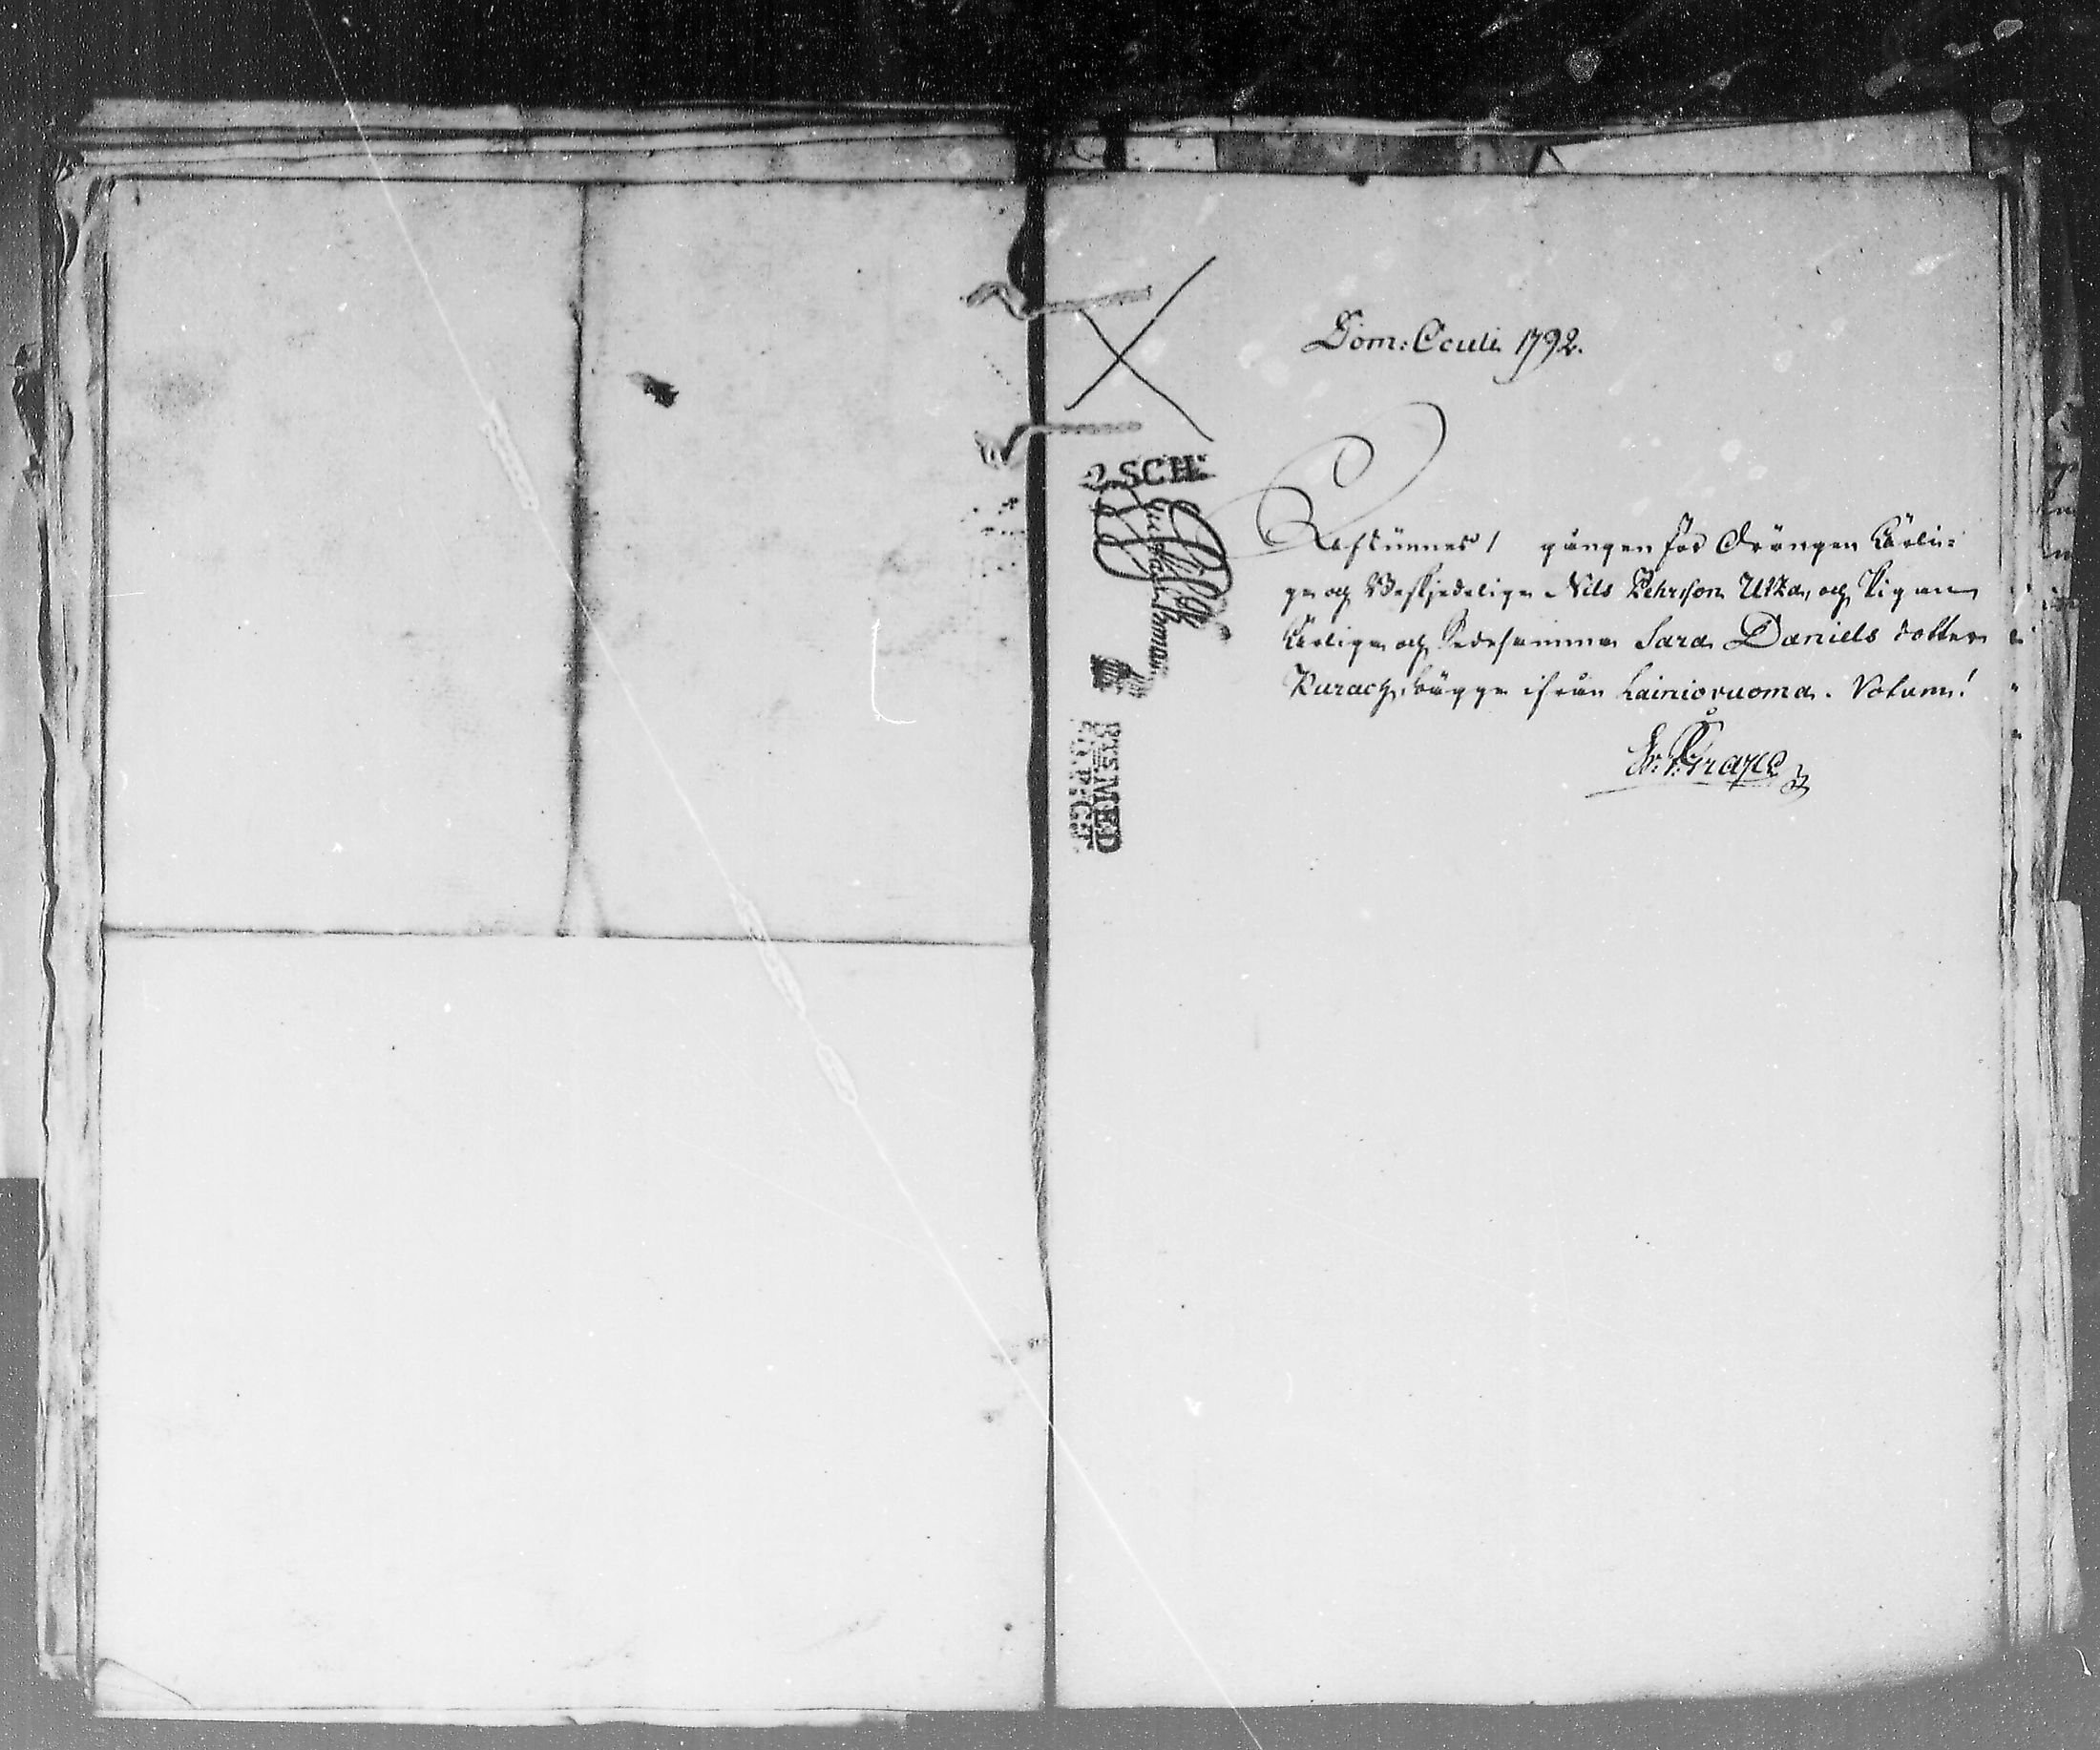 Dom: Oculi 1792.
Afkunnes 1 gången för Drängen Ärli=
ge och Beskjedelige Nils Pehrsson Utza, och Pigan
Ärliga och Sedesamma Sara Daniels dotter
Kurach, bägge ifrån Lainiovuoma. Votum!
Er. Grape
2 SCH: